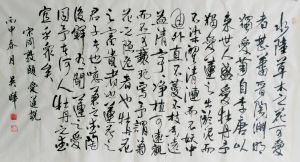 水陸草木之花可愛
者甚蕃晋陶淵明
獨愛菊自李唐以
来世人甚愛牡丹予
獨愛蓮之出淤泥而
不染濯清漣而不妖中
通外直不蔓不枝香遠
益清亭亭净植可遠觀
而不可褻玩焉予謂菊
花之隱逸者也牡丹花
之富貴者也蓮花之
君子者也噫菊之愛陶
後鮮有聞蓮之愛
同予者何人牡丹之愛
宜乎衆矣
宋周敦頤愛蓮説
丙申春月